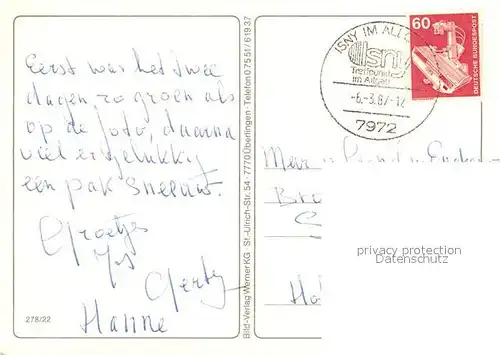 Eerst was het twee
dagen, zo groen als
op de foto, daarna
viel er gelukkig
een pak sneeuw.
Groetjes
Gerty
Hanne
278/22
Bild-Verlag Werner KG St.-Ulrich-Str. 54 - 7770 Überlingen - Telefon 0 75 51/6 19 37
ISNY IM ALLG
isny
Treffpunkt
im Allgäu
-6.-3.87-12
7972
60
DEUTSCHE BUNDESPOST
privacy protection
Datenschutz